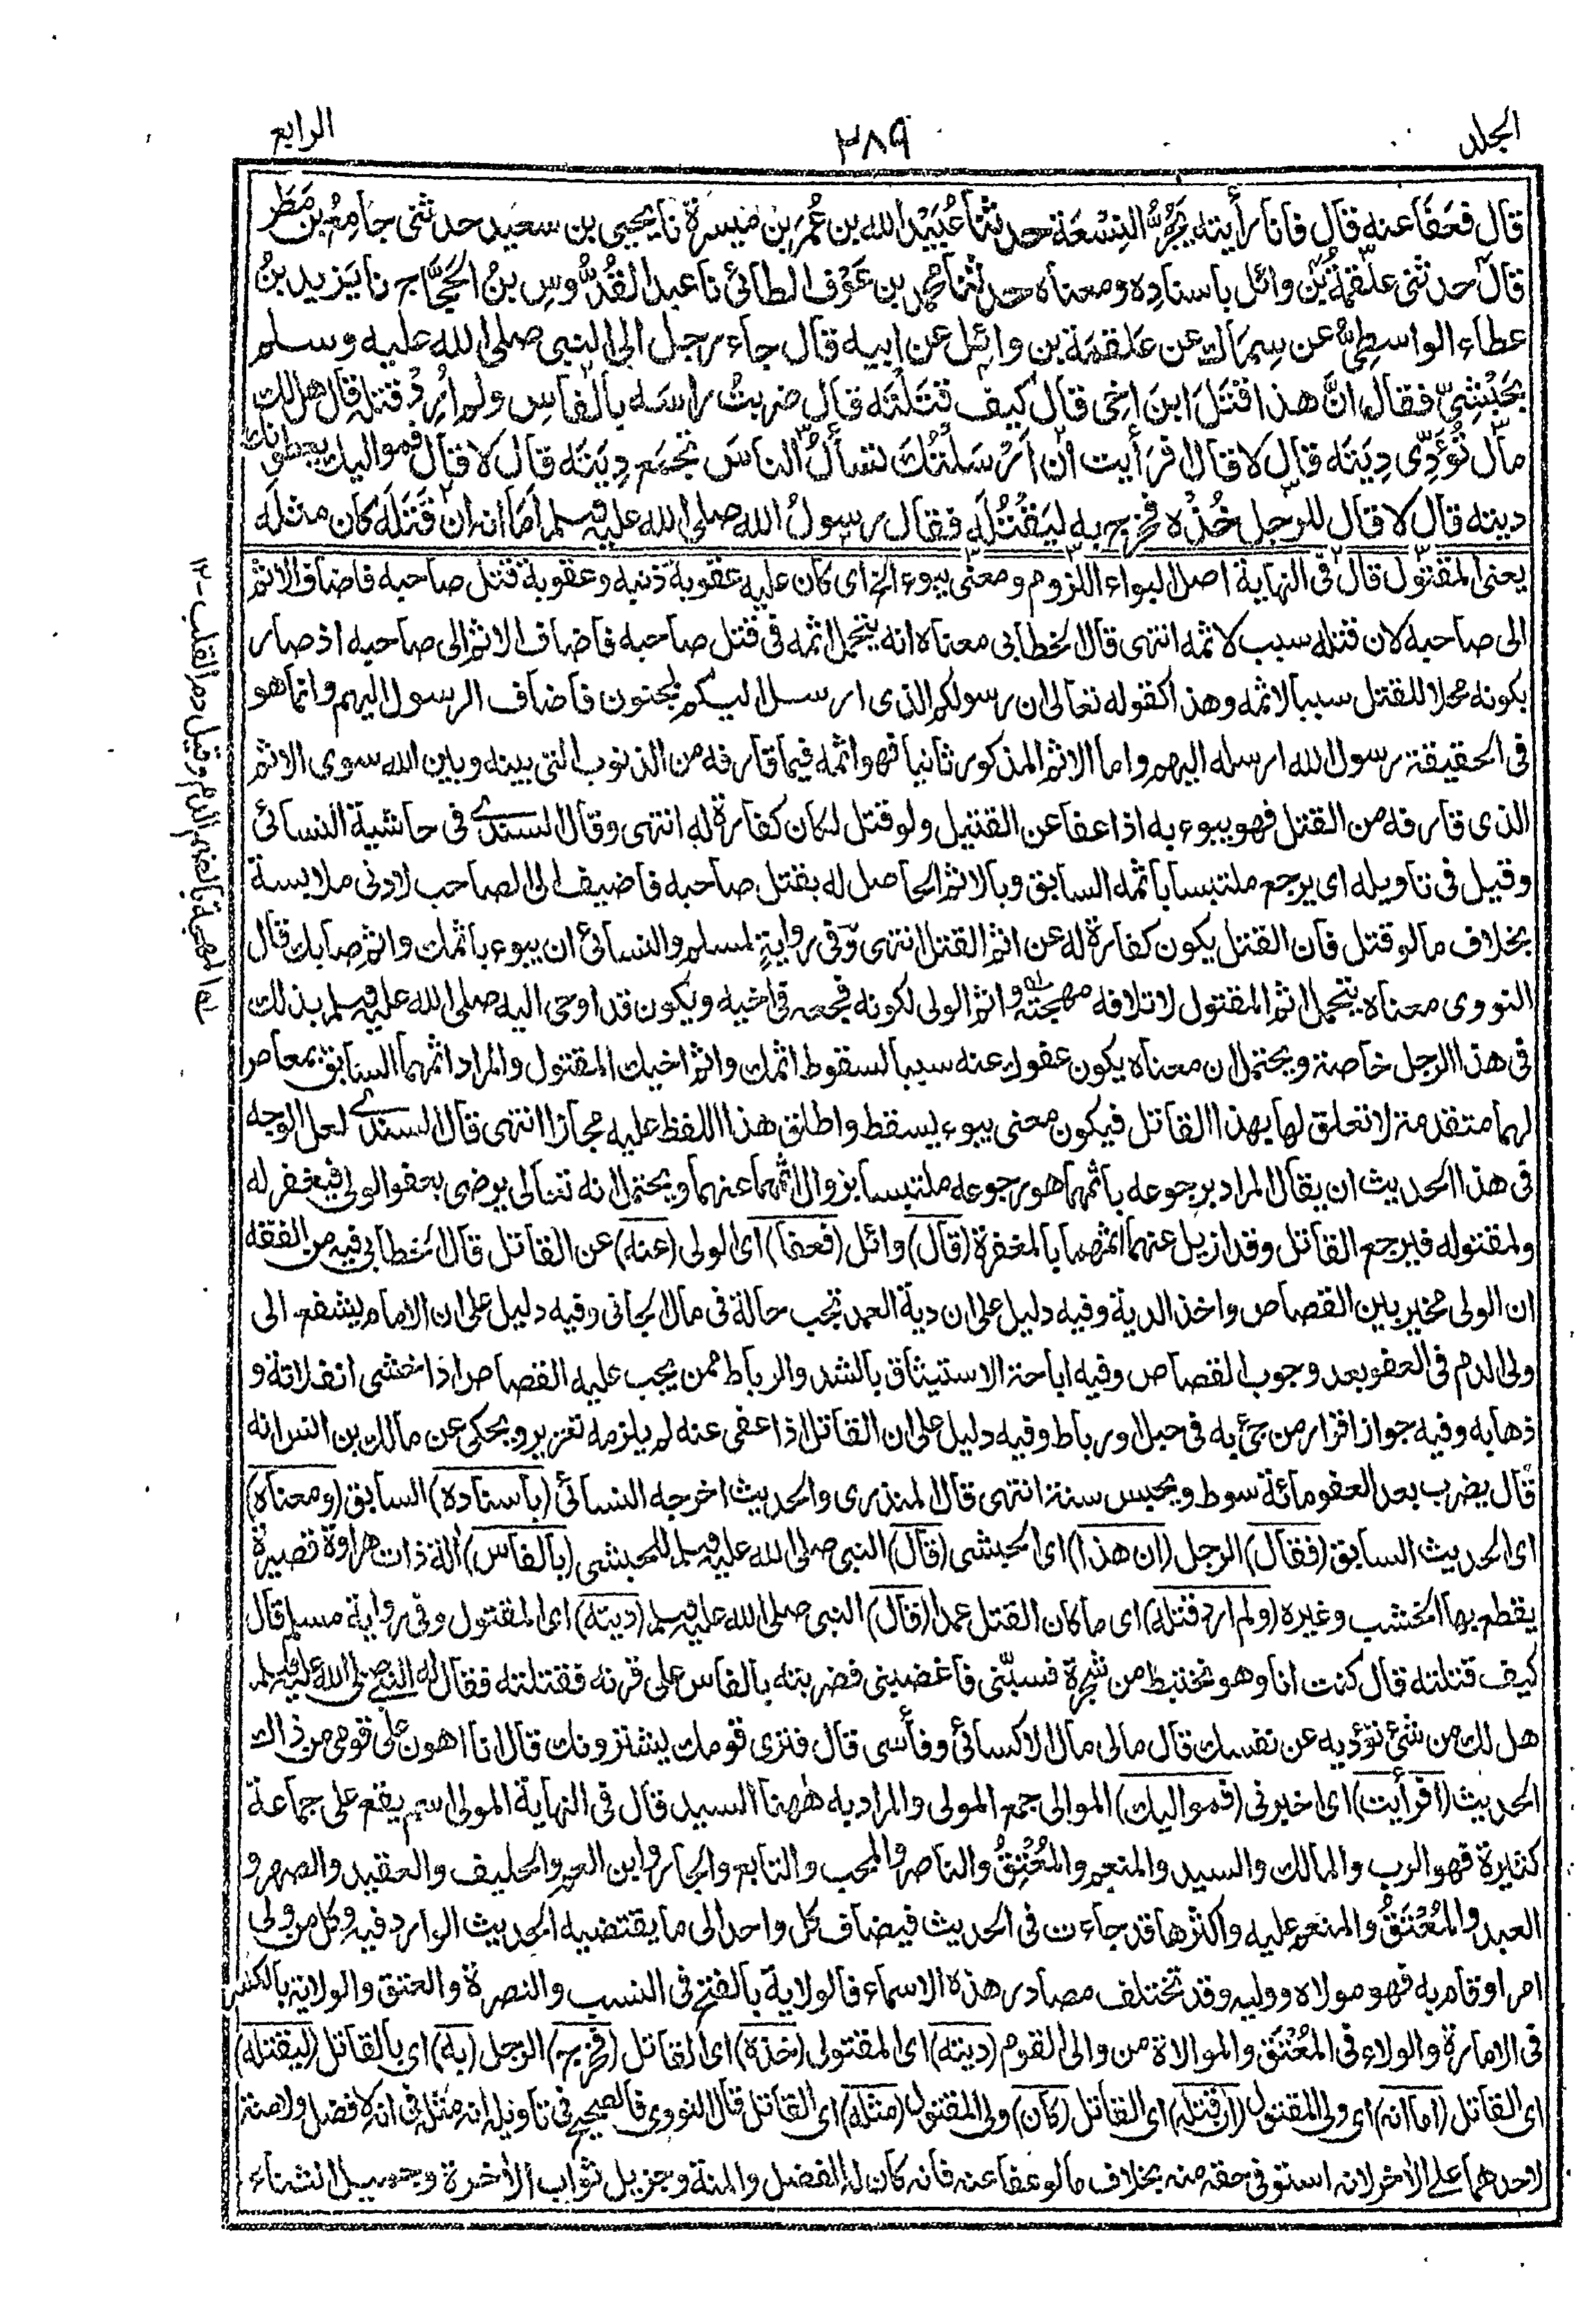 المجلد
٣٨٩
الرابع
قال فَعَفَا عنه قال فانا رأيته يَجُرُّ النِسْعَةَ حدثنا عُبَيْدالله بن عُمَرَ بن مَيسرة نا يحيى بن سعيد حدثنى جامِعُ بن مَطَر
قال حدثنى علقمةُ بن وائل باسنادِه ومعناه حدثنا محمد بن عَوْف الطائى نا عبد القُدُّوسِ بنُ الحَجَّاج نا يَزيد بنُ
عطاء الواسطِىُّ عن سِمَاك عن عَلقمَة بن وائِل عن ابيه قال جاء رجل الى النبى صلى الله عليه وسلم
بحَبْشِىّ فقال انَّ هذا قَتَلَ ابنَ اخى قال كيف قَتَلْتَه قال ضربتُ راسَه بالفاسِ ولم اُرِدْ قتلَه قال هل لك
مال تُؤَدِّى دِيَتَه قال لا قال افرَأيت ان اَرْسَلتُكَ تَسألُ الناسَ تجمَع دِيَتَه قال لا قال فمواليك يعطونك
ديته قال لا قال للرجل خُذْه فخرج به ليَقْتُلَه فقال رسولُ الله صلى الله عليه وسلم اَمَا انه ان قَتَلَه كان مثلَه
يعنى المقتول قال فى النهاية اصل البواء اللزوم ومعنى يبوء الخ اى كان عليه عقوبة ذنبه وعقوبة قتل صاحبه فاضاف الاثم
الى صاحبه لان قتله سبب لاثمه انتهى قال الخطابى معناه انه يتحمل اثمه فى قتل صاحبه فاضاف الاثم الى صاحبه اذ صار
بكونه محلا للقتل سببا لاثمه وهذا كقوله تعالى ان رسولكم الذى ارسل اليكم لمجنون فاضاف الرسول اليهم وانما هو
فى الحقيقة رسول الله ارسله اليهم واما الاثم المذكور ثانيا فهو اثمه فيما قارفه من الذنوب التى بينه وبين الله سوى الاثم
الذى قارفه من القتل فهو يبوء به اذا عفا عن القتيل ولو قتل لكان كفارة له انتهى وقال السندى فى حاشية النسائى
وقيل فى تاويله اى يرجع ملتبسا باثمه السابق وبالاثم الحاصل له بقتل صاحبه فاضيف الى الصاحب لادنى ملابسة
بخلاف ما لو قتل فان القتل يكون كفارة له عن اثم القتل انتهى وفى روايةٍ لمسلم والنسائى ان يبوء باثمك واثم صاحبك قال
النووى معناه يتحمل اثم المقتول لاتلافه مهجته واثم الولى لكونه فجعه فى اخيه ويكون قد اوحى اليه صلى الله عليه وسلم بذلك
فى هذا الرجل خاصة ويحتمل ان معناه يكون عفوك عنه سببا لسقوط اثمك واثم اخيك المقتول والمراد اثمهما السابق بمعاص
لهما متقدمة لا تعلق لها بهذا القاتل فيكون معنى يبوء يسقط واطلق هذا اللفظ عليه مجازا انتهى قال السندى لعل الوجه
فى هذا الحديث ان يقال المراد برجوعه باثمهما هو رجوعه ملتبسا بزوال اثمهما عنهما ويحتمل انه تعالى يرضى بعفو الولى فيغفر له
ولمقتوله فيرجع القاتل وقد ازيل عنهما اثمهما بالمغفرة (قال) وائل (فعفا) اى الولى (عنه) عن القاتل قال الخطابى فيه من الفقه
ان الولى مخير بين القصاص واخذ الدية وفيه دليل على ان دية العمد تجب حالة فى مال الجانى وفيه دليل على ان الامام يشفع الى
ولى الدم فى العفو بعد وجوب القصاص وفيه اباحة الاستيثاق بالشد والرباط ممن يجب عليه القصاص اذا خشى انفلاتة و
ذهابه وفيه جواز اقرار من جئ به فى حبل او رباط وفيه دليل على ان القاتل اذا عفى عنه لم يلزمه تعزير ويحكى عن مالك بن انس انه
قال يضرب بعد العفو مائة سوط ويحبس سنة انتهى قال المنذرى والحديث اخرجه النسائى (باسناده) السابق (ومعناه)
اى الحديث السابق (فقال) الرجل (ان هذا) اى الحبشى (قال) النبى صلى الله عليه وسلم للحبشى (بالفاس) آلة ذات هراوة قصيرة
يقطع بها الخشب وغيره (ولم ارد قتله) اى ما كان القتل عمدا (قال) النبى صلى الله عليه وسلم (ديته) اى المقتول وفى رواية مسلم قال
كيف قتلته قال كنت انا وهو نختبط من شجرة فسبّنى فاغضبنى فضربته بالفاس على قرنه فقتلته فقال له النبى صلى الله عليه وسلم
هل لك من شئ تؤديه عن نفسك قال مالى مال الا كسائى وفأسى قال فترى قومك يشترونك قال انا اهون على قومى من ذاك
الحديث (افرأيت) اى اخبرنى (فمواليك) الموالى جمع المولى والمراد به ههنا السيد قال فى النهاية المولى اسم يقع على جماعة
كثيرة فهو الرب والمالك والسيد والمنعم والمُعْتِقُ والناصر والمحب والتابع والجار وابن العم والحليف والعقيد والصهر و
العبد والمُعْتَقُ والمنعم عليه واكثرها قد جاءت فى الحديث فيضاف كل واحد الى ما يقتضيه الحديث الوارد فيه وكل من ولى
امرا وقام به فهو مولاه ووليه وقد تختلف مصادر هذه الاسماء فالولاية بالفتح فى النسب والنصرة والعتق والولاية بالكسر
فى الامارة والولاء فى المُعْتَق والموالاة من والى القوم (ديته) اى المقتولى (خذه) اى القاتل (فخرج) الرجل (به) اى بالقاتل (ليقتله)
اى القاتل (اما انه) اى ولى المقتول (ان قتله) اى القاتل (كان) ولى المقتول (مثله) اى القاتل قال النووى فالصحيح فى تاويله انه مثله فى انه لا فضل ولا منة
لاحدهما على الآخر لانه استوفى حقه منه بخلاف ما لو عفا عنه فانه كان له الفضل والمنة وجزيل ثواب الآخرة وجميل الثناء
له المهجة بالضم الدم وقيل دم القلب ١٢